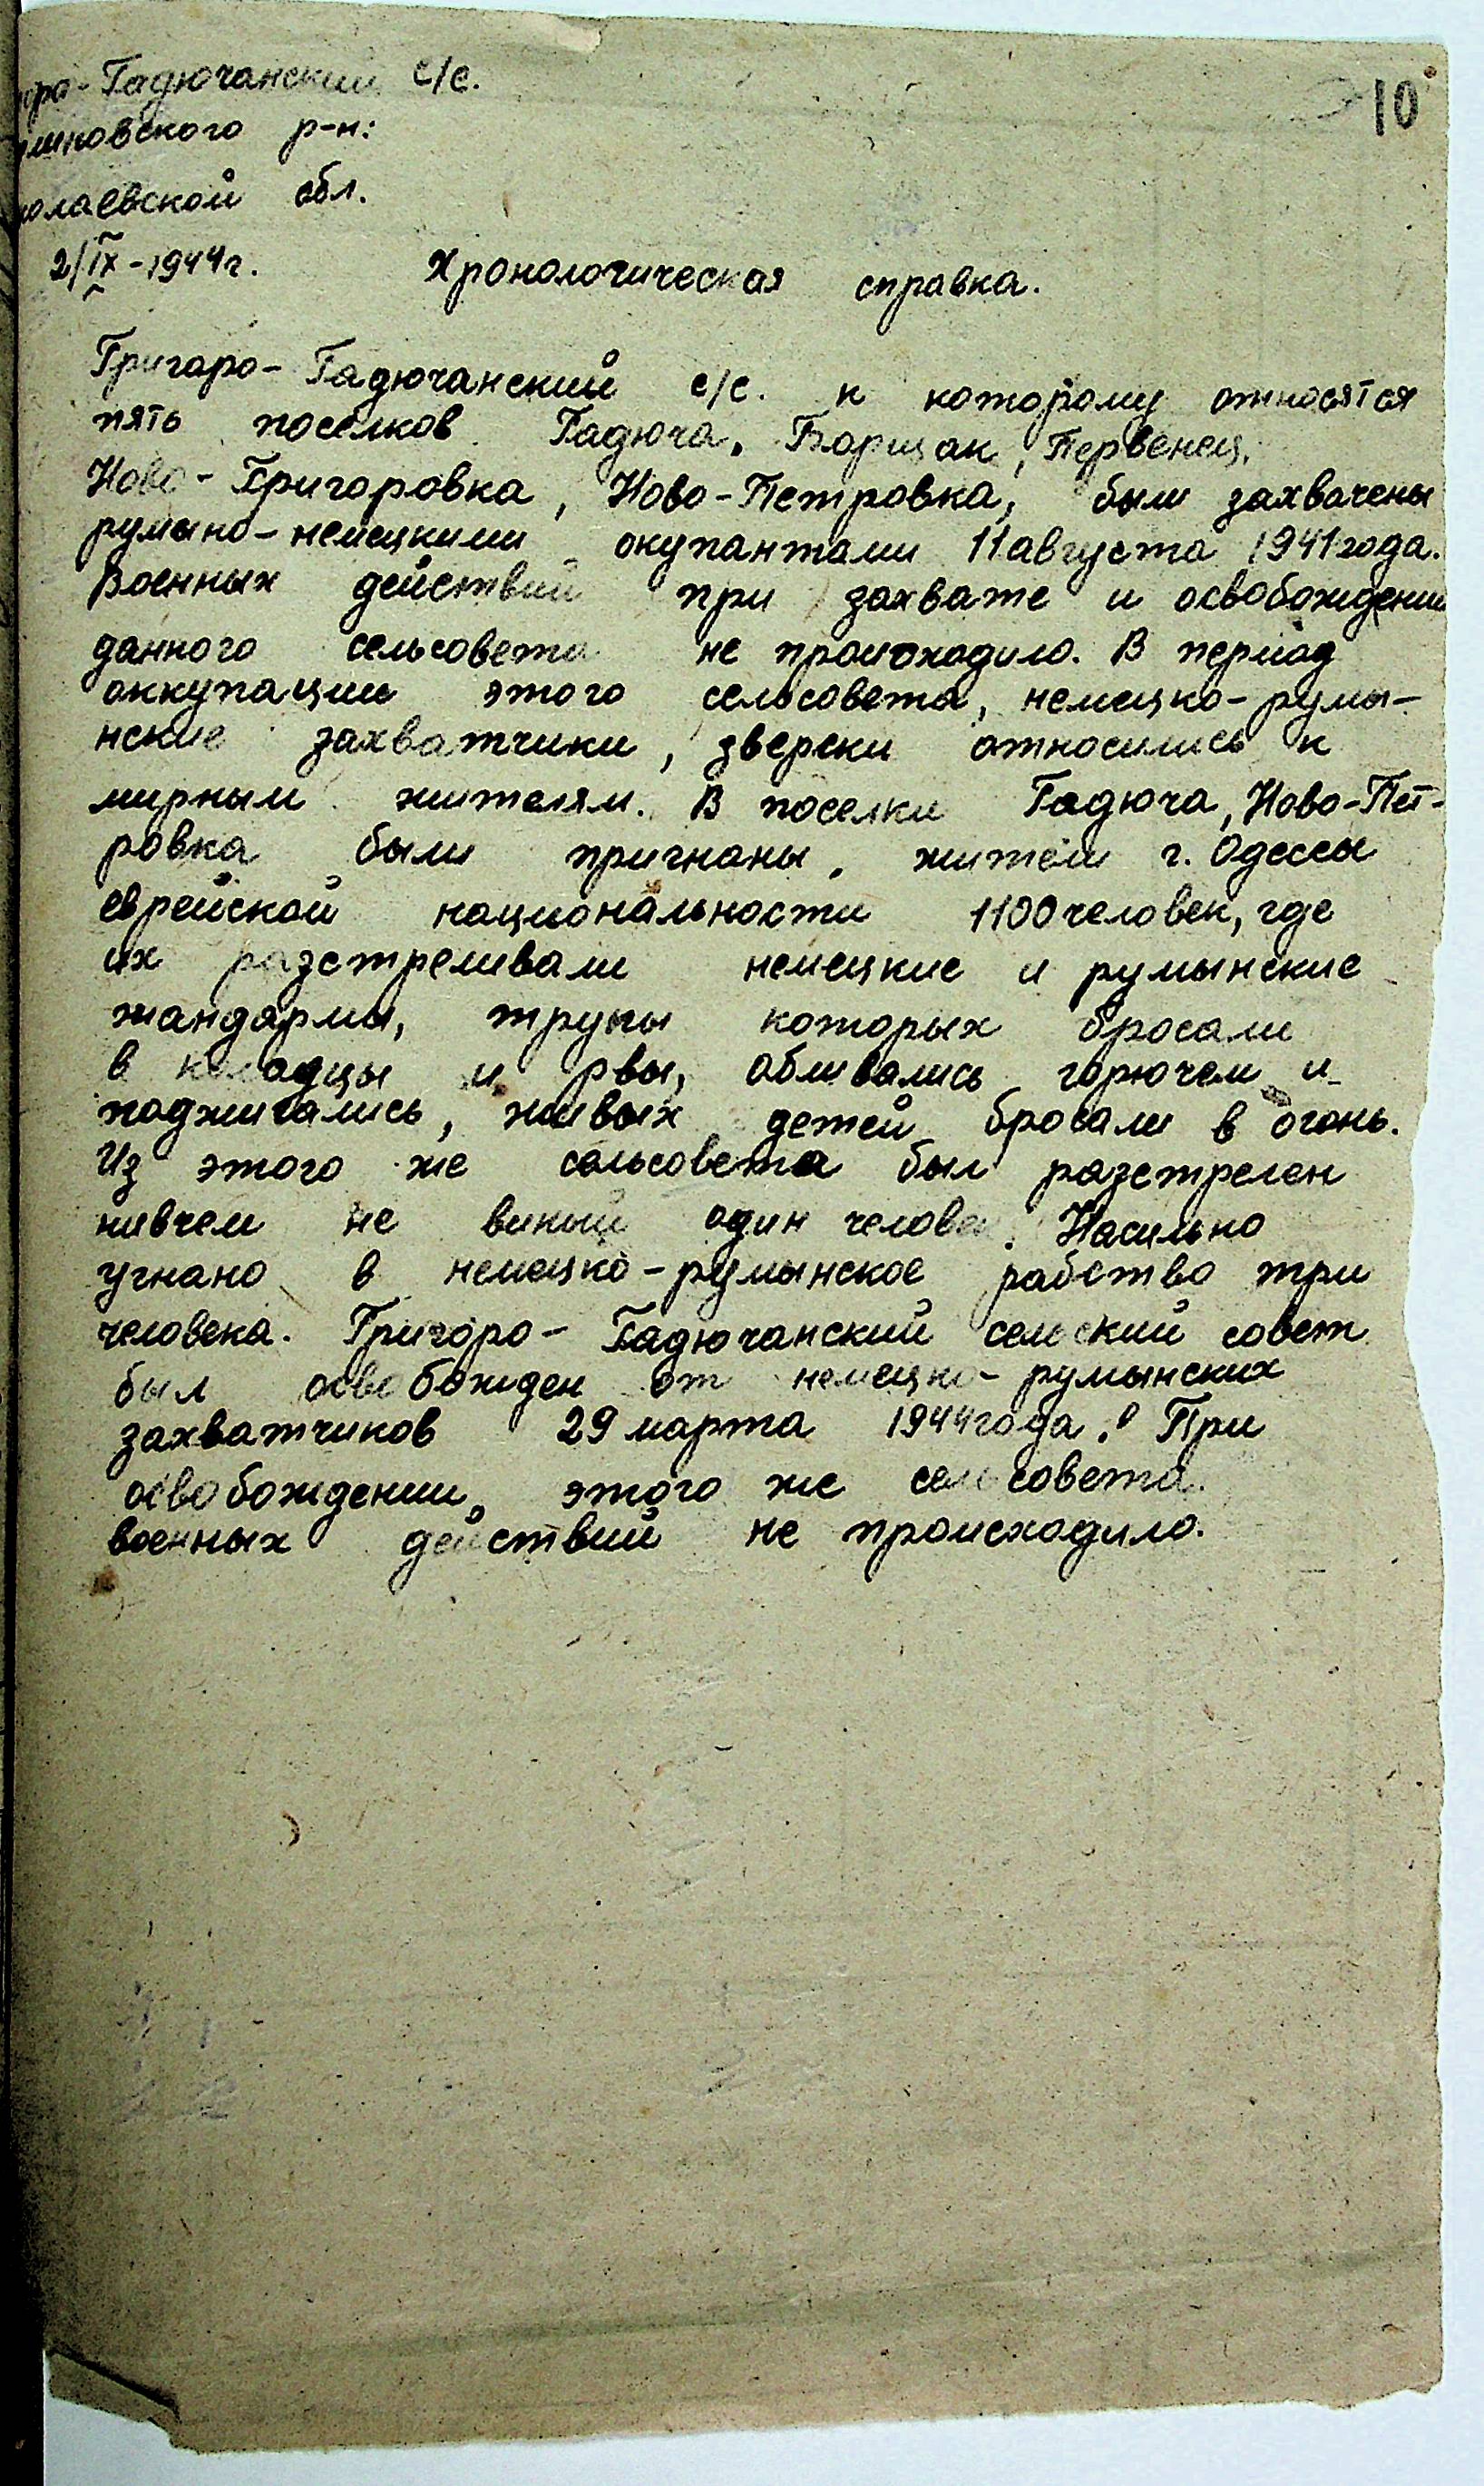 ора-Гадючанский с/с.
10
шковского р-н:
колаевской обл.
2/IX-1944г.
Хронологическая справка.
Григаро-Гадючанский с/с. к которому относятся
пять посёлков Гадюча, Борщак, Первенец,
Ново-Григоровка, Ново-Петровка, были захвачены
румыно-немецкими окупантами 11 августа 1941 года.
Военных действий при захвате и освобождении
данного сельсовета не происходило. В период
оккупации этого сельсовета, немецко-румы-
нские захватчики, зверски относились к
мирным жителям. В поселки Гадюча, Ново-Пет-
ровка были пригнаны, жители г. Одессы
еврейской национальности 1100 человек, где
их разстреливали немецкие и румынские
жандармы, трупы которых бросали
в колодцы и рвы, обливались горючем и
поджигались, живых детей бросали в огонь.
Из этого же сельсовета был разстрелен
нивчем не виный один человек. Насильно
угнано в немецко-румынское рабство три
человека. Григоро-Гадючанский сельский совет
был освобожден от немецко-румынских
захватчиков 29 марта 1944 года. При
освобождении, этого же сельсовета
военных действий не происходило.